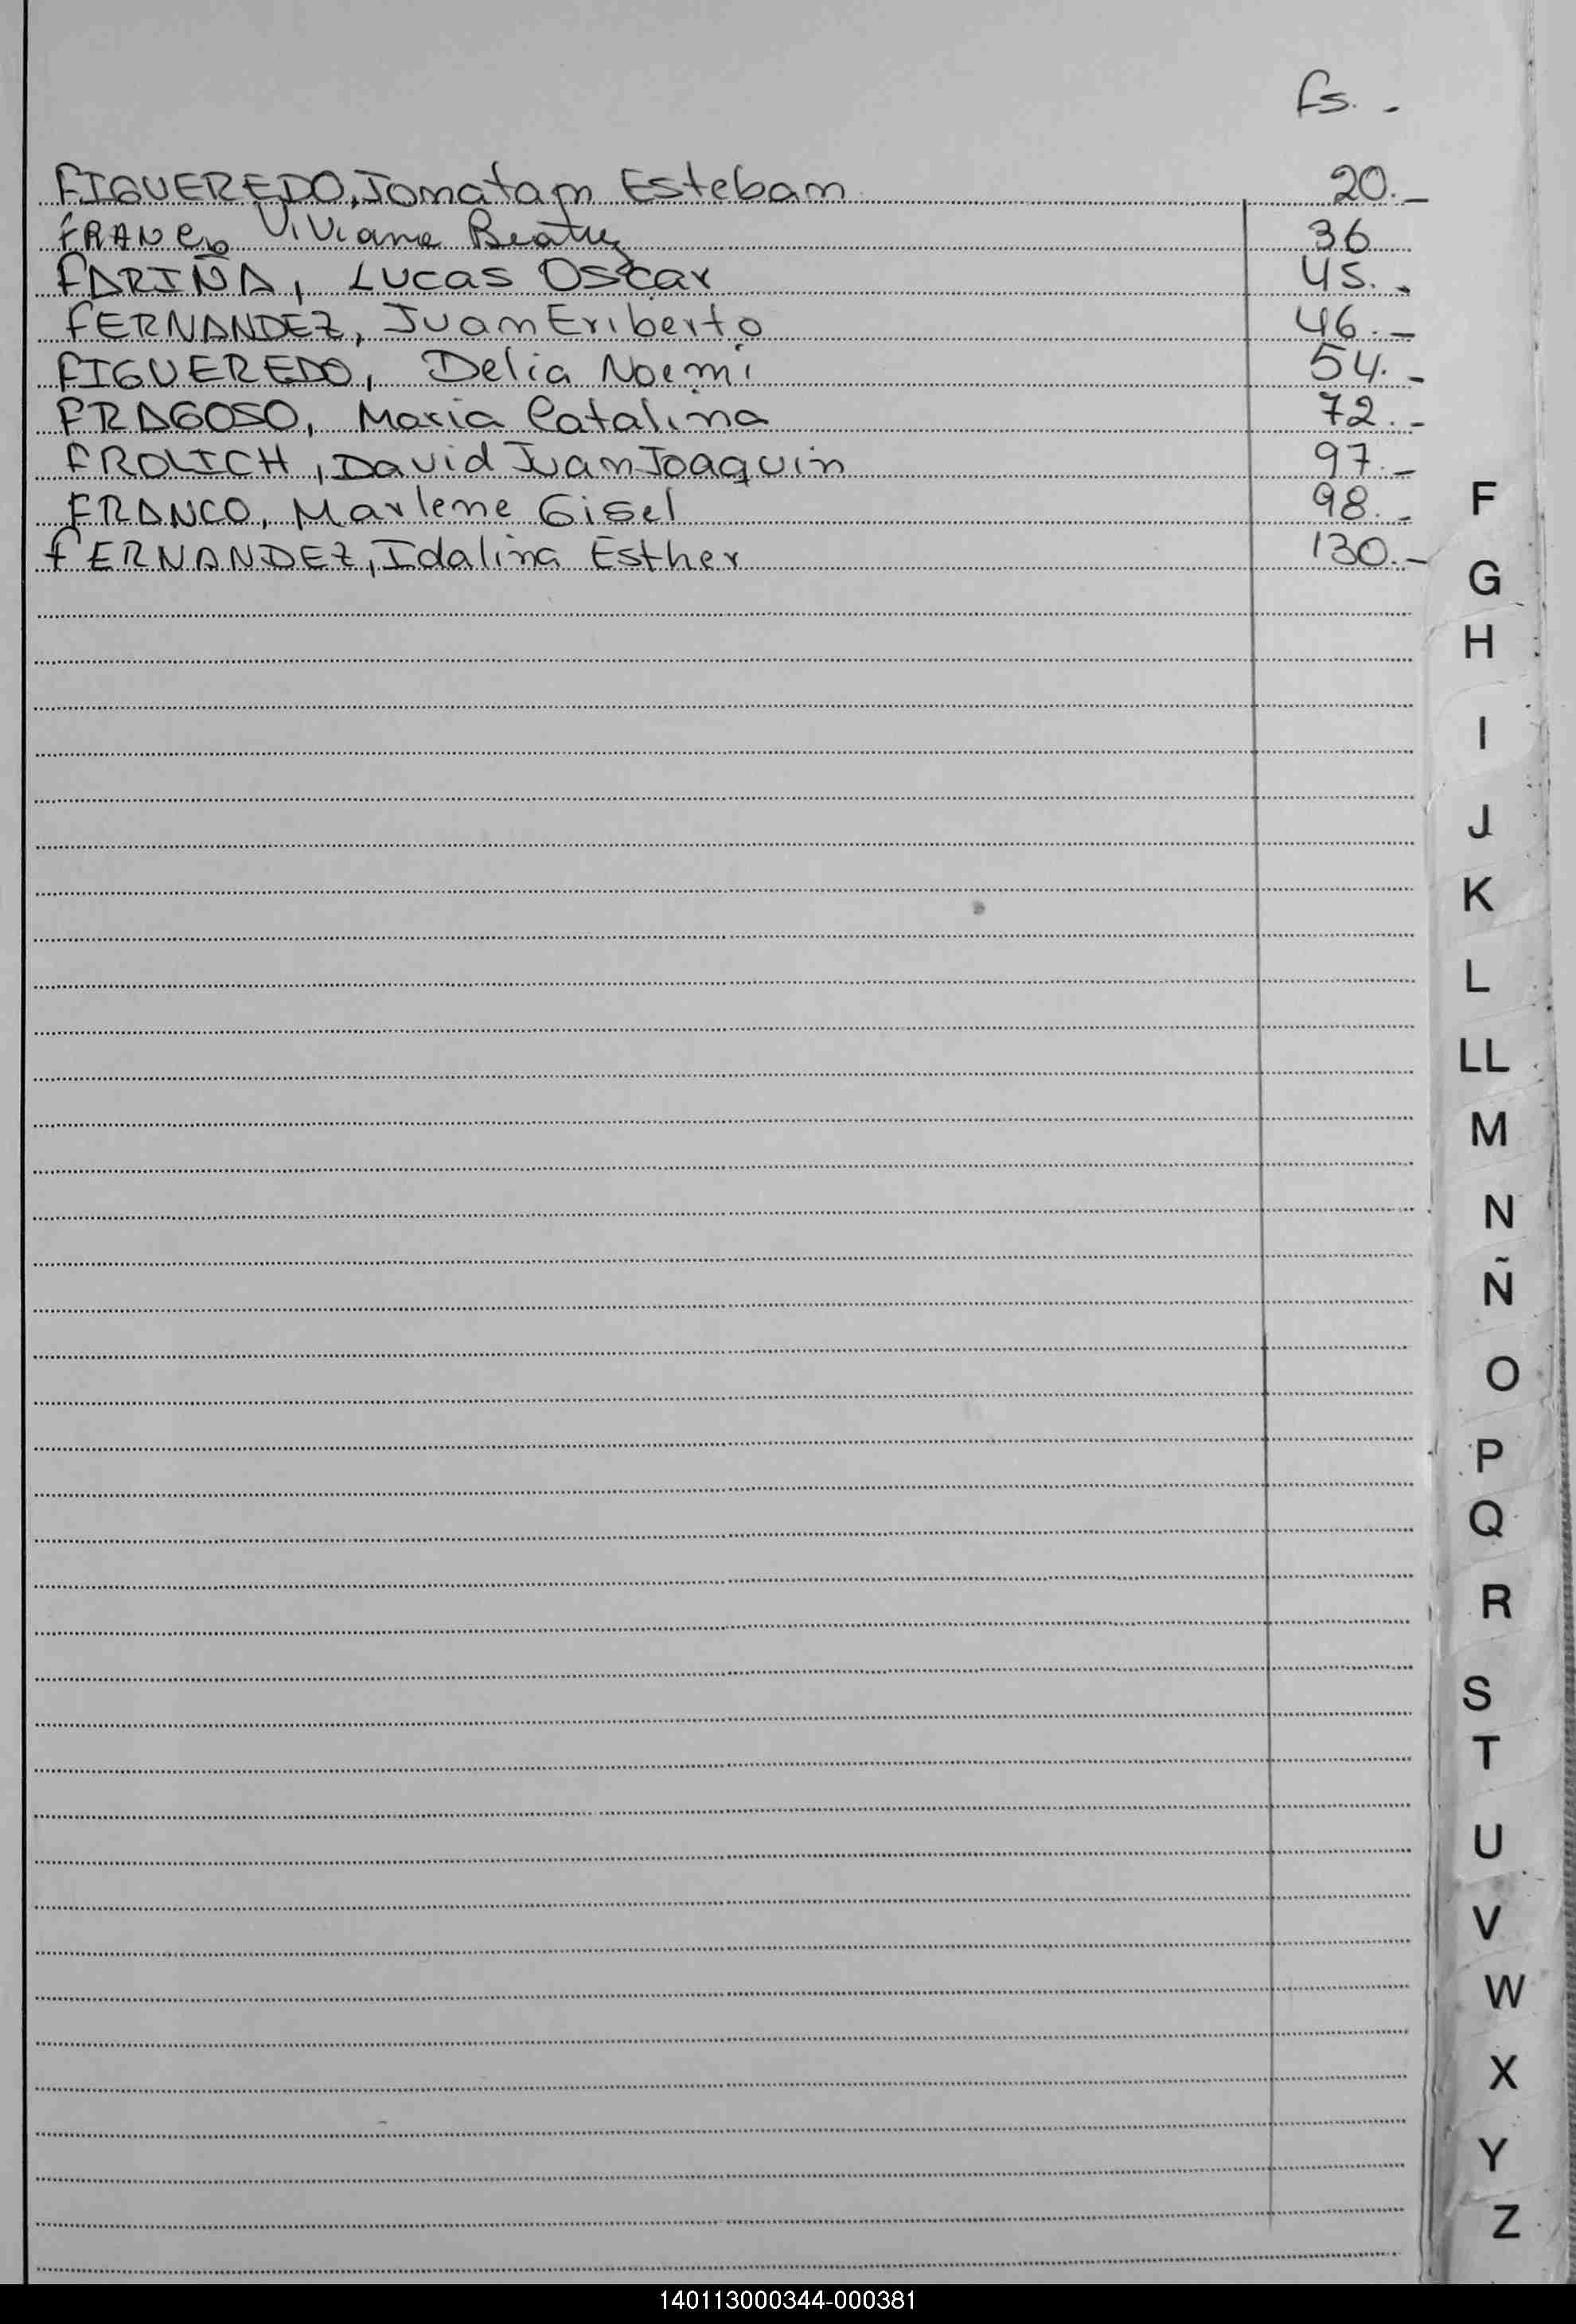 fs. -
FIGUEREDO, Jonatan Esteban 20.-
FRANCO Viviana Beatriz 36
FARIÑA, Lucas Oscar 45.-
FERNANDEZ, Juan Eriberto 46.-
FIGUEREDO, Delia Noemi 54.-
FRAGOSO, Maria Catalina 72.-
FROLICH, David Juan Joaquin 97.-
FRANCO, Marlene Gisel 98.-
FERNANDEZ, Idalina Esther 130.-
F
G
H
I
J
K
L
LL
M
N
Ñ
O
P
Q
R
S
T
U
V
W
X
Y
Z
140113000344-000381